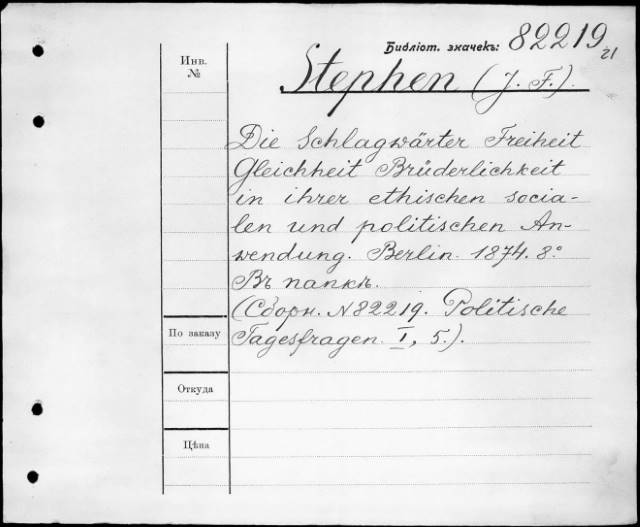 Библіот. значекъ: 82219/21
Инв. №
Stephen (J. F.).
Die Schlagwärter Freiheit
Gleichheit Brüderlichkeit
in ihrer ethischen socia-
len und politischen An-
wendung. Berlin. 1874. 8.°
Въ папкѣ.
(Сборн. N 82219. Politische
Tagesfragen. I, 5.).
По заказу
Откуда
Цѣна